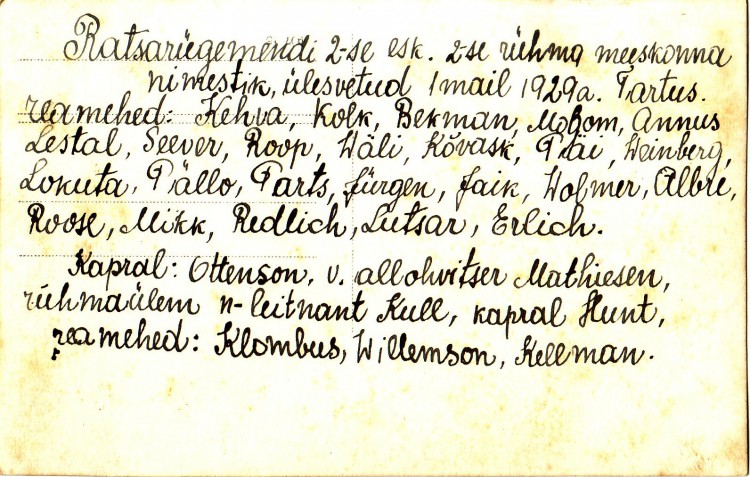 Ratsarügemendi 2-se esk. 2-se rühma meeskonna
nimestik, ülesvetud 1 mail 1929a. Tartus.
reamehed: Kehva, Kolk, Bekman, Annus
Lestal, Seever, Roop, Wäli, Kõvask, Weinberg,
Lokuta, Pällo, Parts, Jürgen, Jaik, Wolmer, Albre,
Roose, Mikk, Redlich, Lutsar, Erlich.
Kapral: Ottenson, v. allohvitser Mathiesen,
rühmaülem n-leitnant Kull, kapral Hunt,
reamehed: Klombus, Willemson, Kellman.